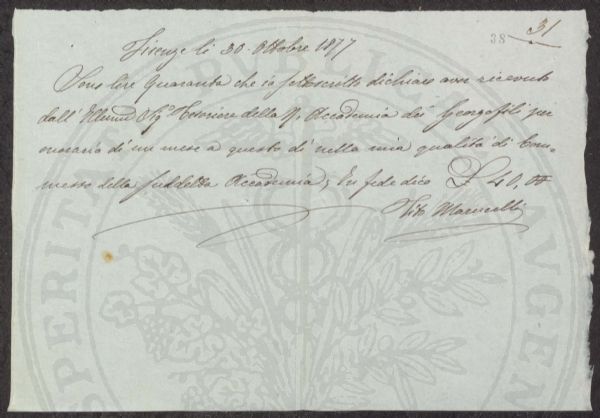 31
38
Firenze li 30. Ottobre 1877
Sono lire Quaranta che io sottoscritto dichiaro aver ricevuto
dall' Illmo Sigre Tesoriere della R. Accademia dei Georgofili per
onorario di un mese a questo dì nella mia qualità di Com-
messo della suddetta Accademia; In fede dico L 40, 00
Vito Marucelli
PROSPERITATI PUBLICAE AUGEN